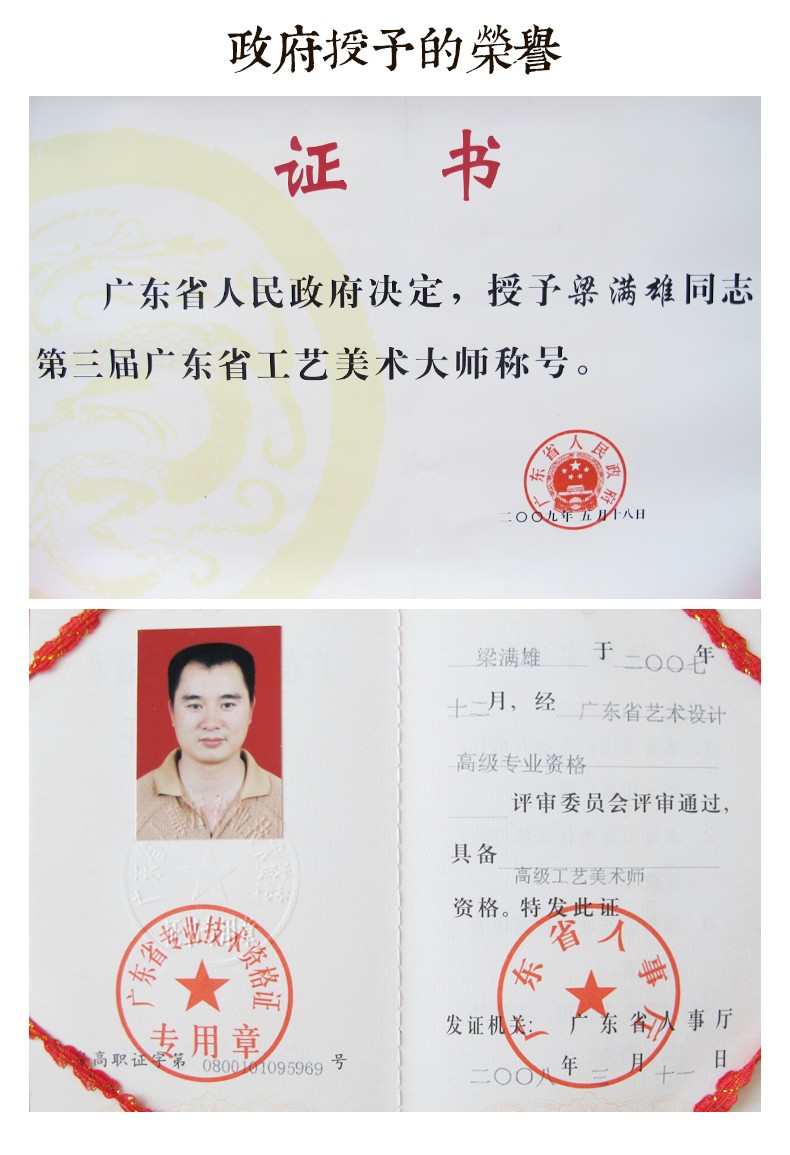 政府授予的榮譽
证书
广东省人民政府决定，授予梁满雄同志
第三届广东省工艺美术大师称号。
广东省人民政府
二〇〇九年五月十八日
梁满雄于二〇〇七年
十二月，经广东省艺术设计
高级专业资格
评审委员会评审通过，
具备
高级工艺美术师
资格。特发此证
广东省人事厅
发证机关：广东省人事厅
二〇〇八年三月十一日
广东省专业技术资格证
专用章
高职证字第0800101095969号